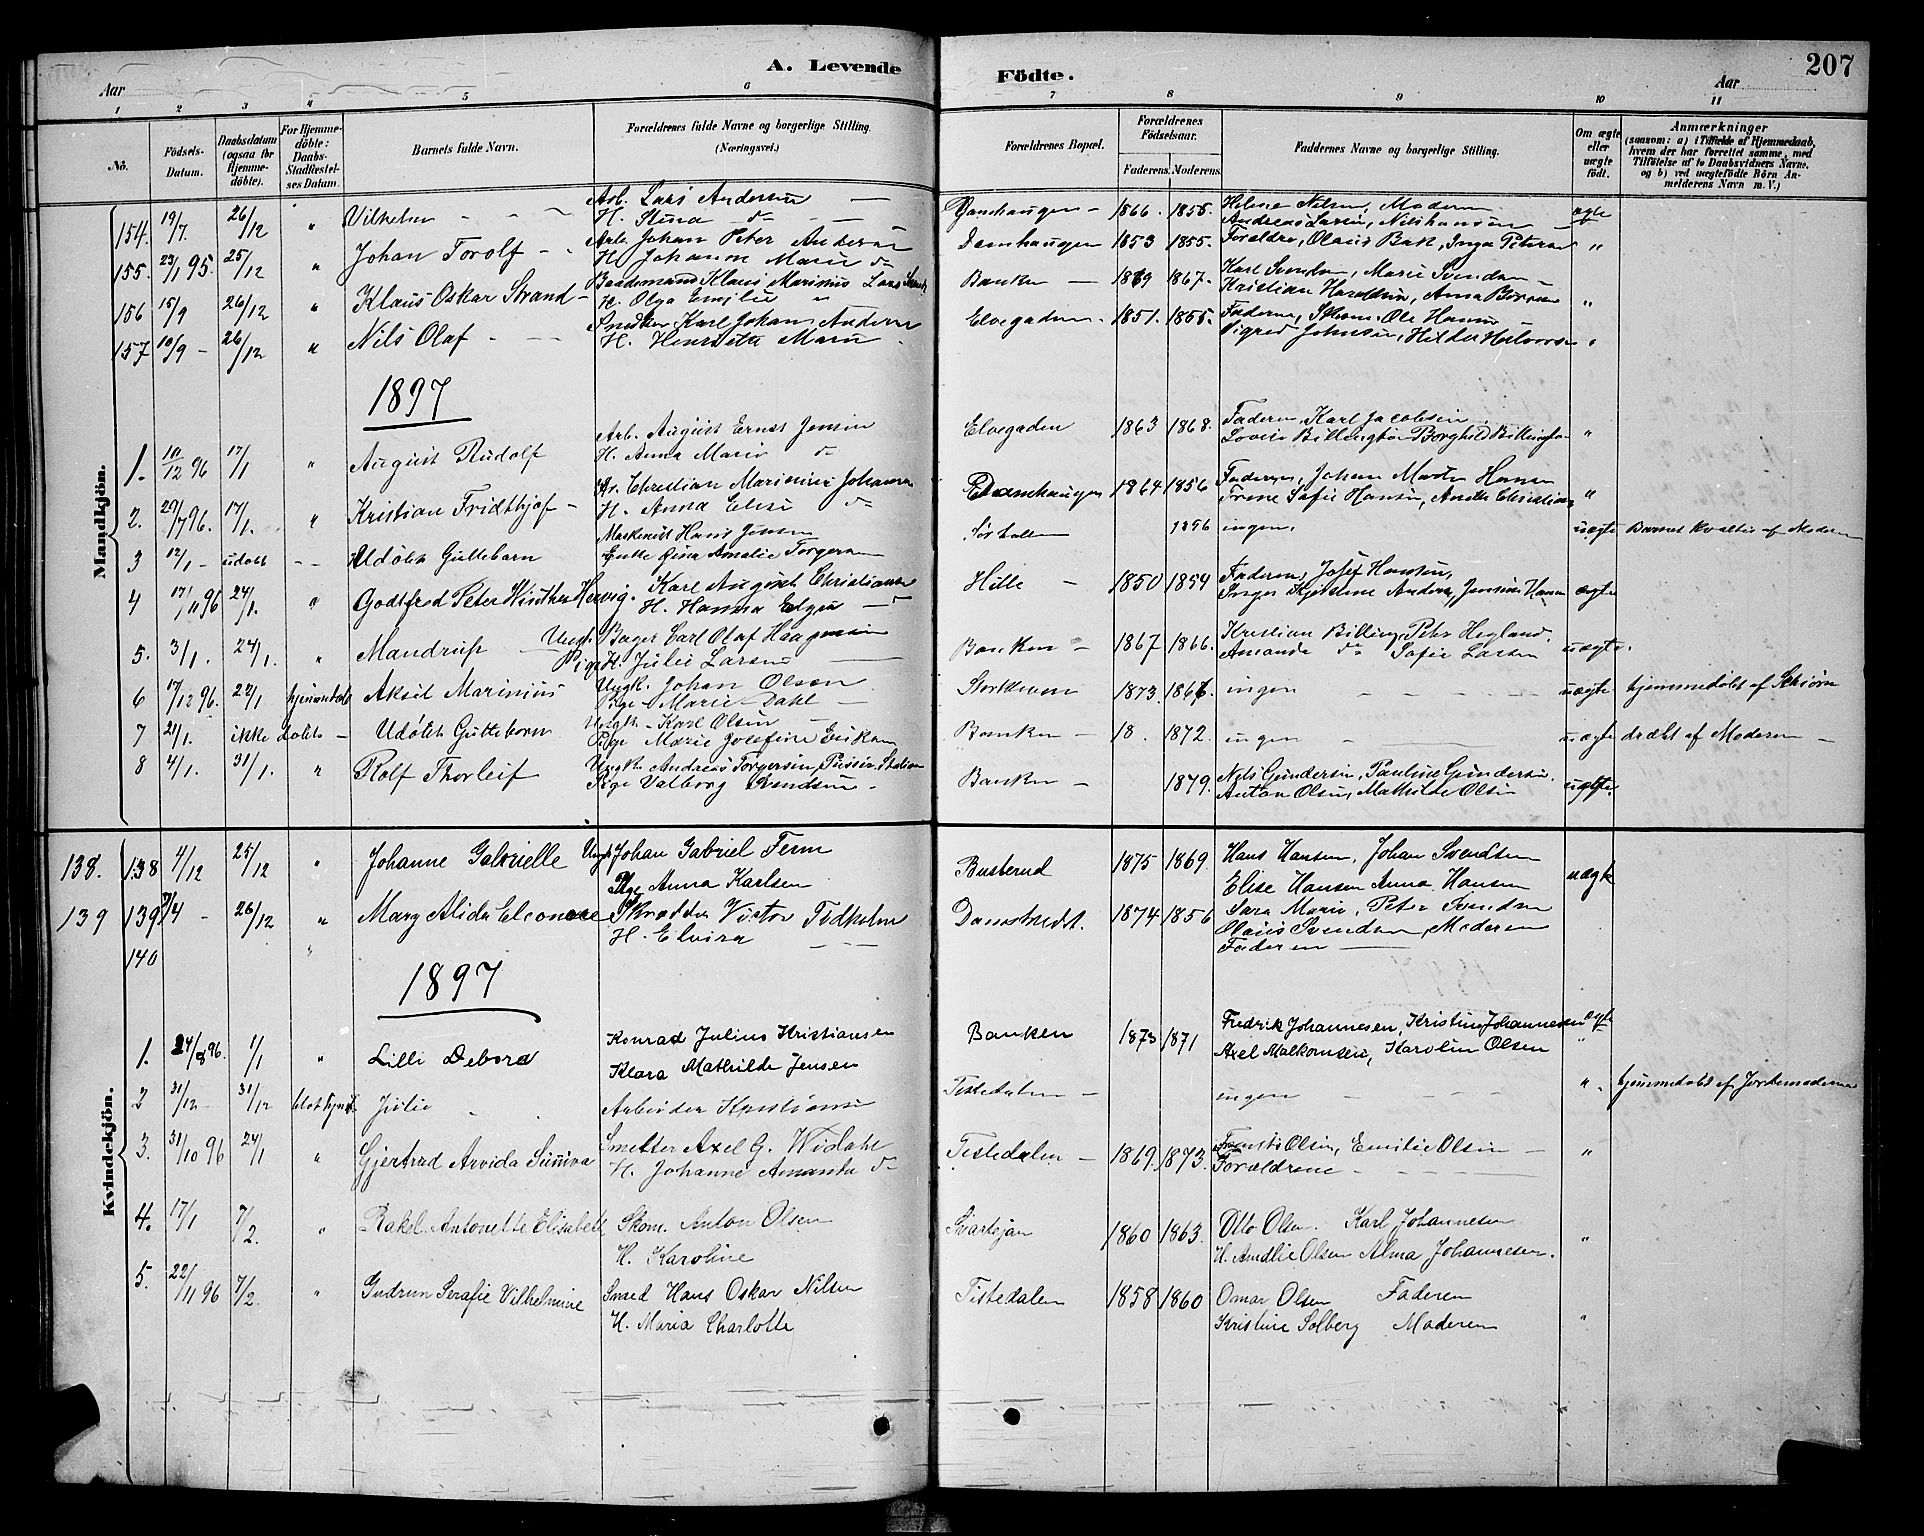 A. Levende Födte.
207
Aar Aar
1 2 3 4 5 6 7 8 9 10 11
No.
Födsels-Datum.
Daabsdatum (ogsaa for Hjemme-döbte).
For Hjemme-döbte: Daabs-Stadfæstel-ses Datum.
Barnets fulde Navn.
Forældrenes fulde Navne og borgerlige Stilling. (Næringsvei.)
Forældrenes Bopæl.
Forældrenes Födselsaar.
Faderens. Moderens.
Faddernes Navne og borgerlige Stilling.
Om ægte eller uægte födt.
Anmærkninger (saasom: a) i Tilfælde af Hjemmedaab, hvem der har forrettet samme, med Tilföielse af to Daabsvidners Navne. og b) ved uægtefödte Börn An-melderens Navn m. V.)
Mandkjön.
154. 19/7. 26/12 " Vilhelm Arb. Lars Andersen Damhaugen 1866. 1855. Helene Nilsen, Moderen ægte
H. Stina do Andreas Larsen, Nils Hansen
155. 23/1 95. 25/12 " Johan Torolf Arb. Johan Peter Andersen Damhaugen 1853 1855. Forældre, Olaus Bak, Inga Petersen "
H. Johanne Marie do
156 15/9 26/12 " Klaus Oskar Strand Baadsmand Klaus Marinius Lars Strand Banken 1869 1867. Karl Svendsen, Marie Svendsen "
H. Olga Emilie " Kristian Haraldsen, Anna
157 10/9 26/12 " Nils Olaf Snedker Karl Johan Andersen Elvegaden 1851. 1855. Faderen, Ole Hansen "
H. Henriette Marie Sigred Johnsen, Hilda Halvorsen
1897
1. 10/12 96 17/1 " August Rudolf Arb. August Ernst Jensen Elvegaden 1863 1868. Faderen, Karl Jacobsen "
H. Anna Marie do Lovise Billington Borghild Billington
2. 29/7 96. 17/1. " Kristian Fridthjof Ar. Christian Marinius Johansen Damhaugen 1864 1856 Faderen, Johan Martin Hansen "
H. Anna Elise do Trine Sofie Hansen, Anette Christiansen
3 12/1 udöbt Udöbt Guttebarn Maskinist Hans Jensen 1856 ingen. uægte Barnet kvaltes af Moderen
Enke Amalie Torgersen
4 17/11 96 24/1. " Godtfred Peter Winther Hervig. Karl August Christiansen Hille 1850 1854 Faderen, Josef Hansen, ægte
H. Hanna Elgia do Inger Kjerstine Anders, Hansen
5. 3/1. 24/1. " Mandrup Ungk. Bager Carl Olaf Haagensen Banken 1867 1866. Kristian Billing, Peter Hegland. uægte.
Pige H. Julie Larsen Amanda do Sofie Larsen
6 17/12 96. 22/1 hjemmedöbt Aksel Marinius Ungk. Johan Olsen 1873. 1867. ingen uægte hjemmedöbt af
Pige Marie Dahl
7 21/1. ikke döbt Udöbt Guttebarn Ungk. Karl Olsen Banken 18. 1872. ingen uægte dræbt af Moderen
Pige Marie Josefine Eriksen
8 4/1. 31/1. " Rolf Thorleif Ungk. Andreas Torgersen, Station Banken 1879. Nils Gundersen, Pauline Gundersen. uægte.
Pige Valborg Svendsen Anton Olsen, Mathilde Olsen
Kvindekjön.
138. 138 4/12 25/12 " Johanne Gabrielle Ungk. Johan Gabriel Ferm Busterud 1875 1869. Hans Hansen, Johan Svendsen uægte
Pige Anna Karlsen Elise Hansen Anna Hansen
139 139 26/12 " Mary Alida Eleonore Skrædder Victor Tidholm Damstrædt. 1874 1856 Sara Marie, Peter Svendsen
H. Elvira Olaus Svendsen, Moderen
140 " Faderen
1897
1. 24/8 96. 1/1 " Lilli Debora Konrad Julius Kristiansen Banken 1873 1871 Fredrik Johannesen, Kristine Johannesen ægte
Klara Mathilde Jensen Axel Malkomsen, Karoline Olsen "
2 31/12 31/12 Julie Arbeider Kristiansen Tistedalen ingen " hjemmedöbt af Jordemoderen
3. 31/10 96 24/1 " Gjertrud Arvida Sunniva Smelter Axel G. Widahl Tistedalen 1869. 1873. Olsen, Emilie Olsen "
H. Johanne Amanda do Forældrene
4. 17/1 7/2. " Rakel Antonette Elisabeth Skom. Anton Olsen Svartejan 1860 1863. Otto Olsen. Karl Johannesen "
H. Karoline H. Amalie Olsen Alma Johannesen.
5. 22/11 96 7/2. " Gudrun Serafie Vilhelmine Smed Hans Oskar Nilsen Tistedalen 1858 1860 Omar Olsen Faderen
H. Maria Charlotte Kristine Solberg Moderen "